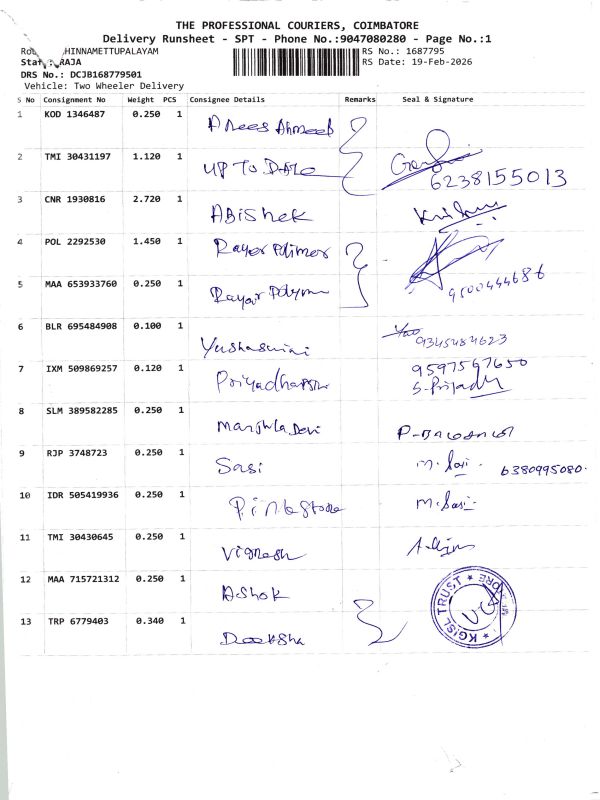 THE PROFESSIONAL COURIERS, COIMBATORE
Delivery Runsheet - SPT - Phone No.:9047080280 - Page No.:1
HINNAMETTUPALAYAM RS No.: 1687795
RAJA RS Date: 19-Feb-2026
DRS No.: DCJB168779501
Vehicle: Two Wheeler Delivery
S No Consignment No Weight PCS Consignee Details Remarks Seal & Signature
1 KOD 1346487 0.250 1 Anees Ahmeed
2 TMI 30431197 1.120 1 UP TO DATE 6238155013
3 CNR 1930816 2.720 1 ABishek
4 POL 2292530 1.450 1 Rayar Polimer
5 MAA 653933760 0.250 1 Rayar Polymer 9500444686
6 BLR 695484908 0.100 1 Yushaswini 9345484623
7 IXM 509869257 0.120 1 Priyadharshni 9597567650
S. Priyadh
8 SLM 389582285 0.250 1 Manjula Devi
9 RJP 3748723 0.250 1 Sasi M. Sasi 6380995080
10 IDR 505419936 0.250 1 Pink Store M. Sasi
11 TMI 30430645 0.250 1 Vignesh
12 MAA 715721312 0.250 1 Ashok
13 TRP 6779403 0.340 1 Deeksha
KGISL TRUST